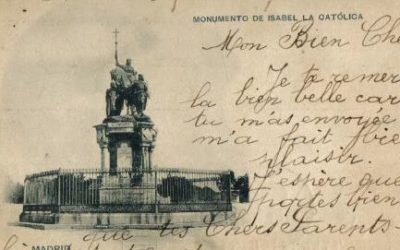 MONUMENTO DE ISABEL LA CATÓLICA
Mon Bien Che
Je te remer
la bien belle car
tu m'as envoyée
m'a fait bie
plaisir.
J'espère que
portes bien
MADRID
que tes Chers Parents